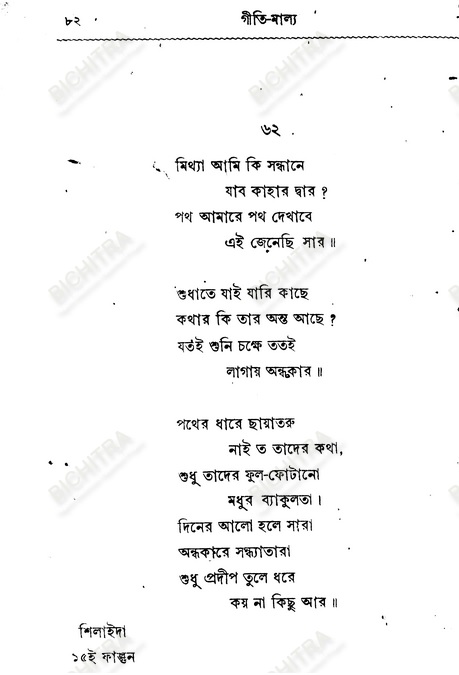 ৮২
গীতি-মাল্য
৬২
মিথ্যা আমি কি সন্ধানে
যাব কাহার দ্বার ?
পথ আমারে পথ দেখাবে
এই জেনেছি সার ॥
শুধাতে যাই যারি কাছে
কথার কি তার অন্ত আছে ?
যতই শুনি চক্ষে ততই
লাগায় অন্ধকার ॥
পথের ধারে ছায়াতরু
নাই ত তাদের কথা,
শুধু তাদের ফুল-ফোটানো
মধুব ব্যাকুলতা।
দিনের আলো হলে সারা
অন্ধকারে সন্ধ্যাতারা
শুধু প্রদীপ তুলে ধরে
কয় না কিছু আর ॥
শিলাইদা
১৫ই ফাল্গুন
BICHITRA
BICHITRA
BICHITRA
BICHITRA
BICHITRA
BICHITRA
BICHITRA
BICHITRA